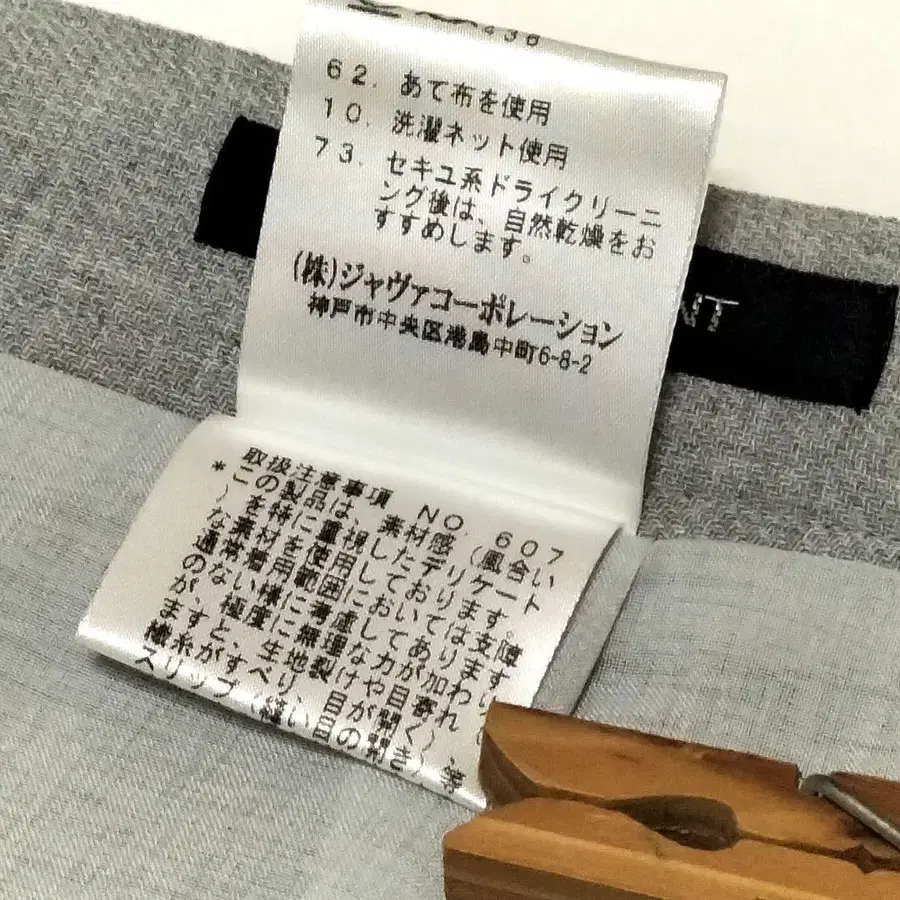 436
62. あて布を使用
10. 洗濯ネット使用
73. セキユ系ドライクリーニ
ング後は、自然乾燥をお
すすめします。
(株)ジャヴァコーポレーション
神戸市中央区港島中町6-8-2
NT
取扱注意事項 NO. 607
*この製品は、素材感(風合い
)を特に重視したデリケート
な素材を使用しております。
通常着用範囲においては支障
のない様に考慮してあります
が、極度に無理な力が加わり
ますと、生地裂けや目寄れ(
縫糸がすべり、目が開く)、
スリップ(縫い目の開き)等